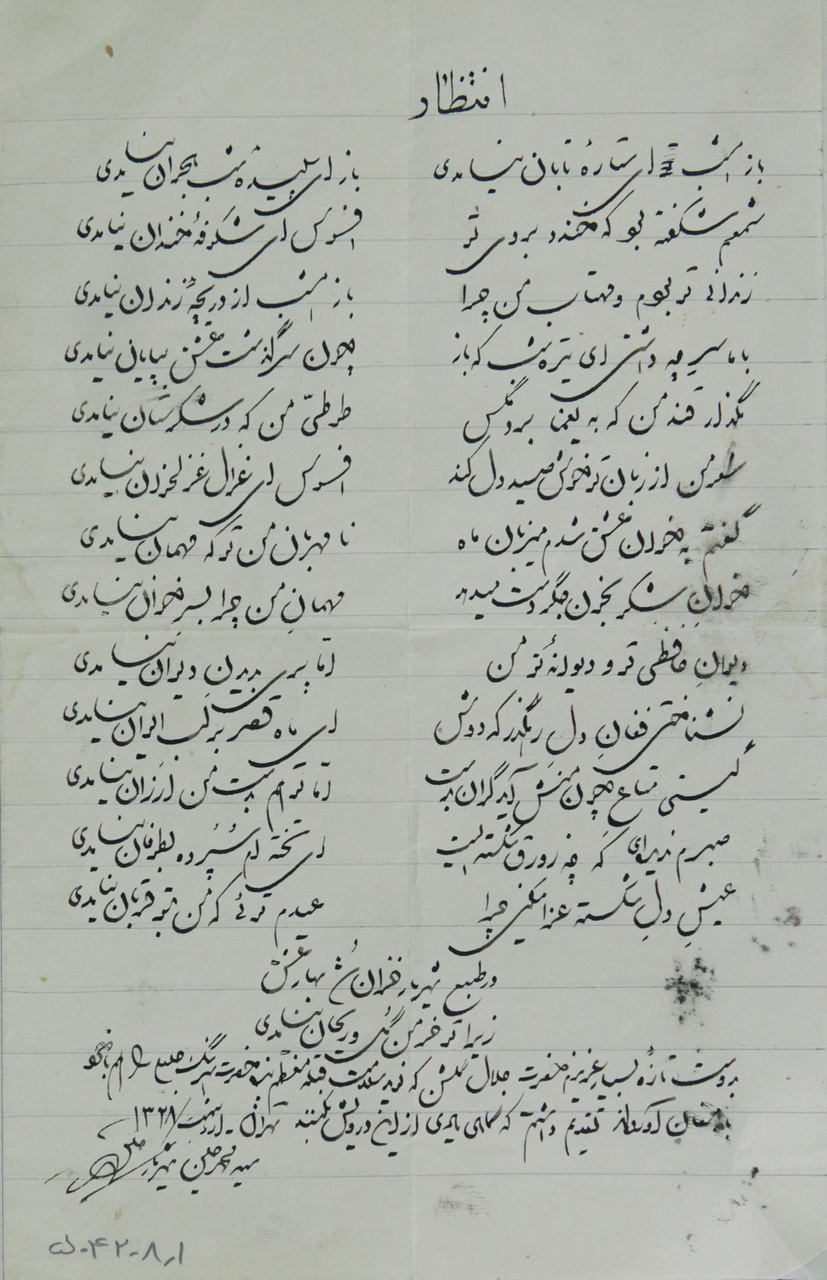 انتظار
باز امشب ای ستارهٔ تابان نیامدی    باز ای سپیدهٔ شب هجران نیامدی
شمعم شکفته بود که خندد بروی تو    افسوس ای شکوفهٔ خندان نیامدی
زندانی تو بودم و مهتاب من چرا    باز امشب از دریچهٔ زندان نیامدی
با ما سر چه داشتی ای تیره شب که باز    چون سرگذشت عشق بپایان نیامدی
مگذار قند من که به یغما برد مگس    طوطیّ من که در شکرستان نیامدی
شعر من از زبان تو خوش صید دل کند    افسوس ای غزال غزلخوان نیامدی
گفتم به خوان عشق شدم میزبان ماه    نامهربان من تو که مهمان نیامدی
خوان شکر بخون جگر دست میدهد    مهمان من چرا بسر خوان نیامدی
دیوان حافظی تو و دیوانهٔ تو من    اما پری بدیدن دیوان نیامدی
نشناختی فغان دل رهگذر که دوش    ای ماه قصر بر لب ایوان نیامدی
گیتی متاع چون منش آید گران بدست    اما تو هم بدست من ارزان نیامدی
صبرم ندیده‌ای که چه زورق شکسته ایست    ای تخته ام سپرده بطوفان نیامدی
عیش دل شکسته عزا میکنی چرا    عیدم توئی که من بتو قربان نیامدی
در طبع شهریار خزان شد بهار عشق
زیرا تو خرمن گل و ریحان نیامدی
بدوست تازهٔ بسیار عزیزم حضرت جلال که
تقدیم داشتم که از این درویش تهران - اردیبهشت ۱۳۲۸
سید محمد حسین شهریار
۵۰۴۲-۸،۱